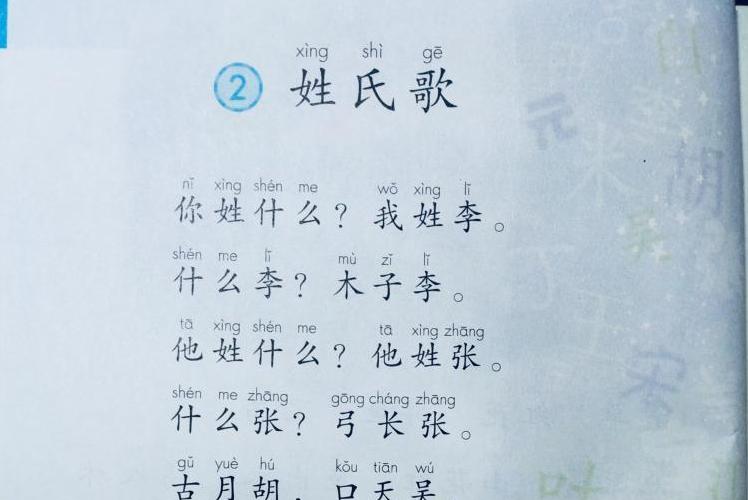 xìng shì gē
2 姓氏歌
nǐ xìng shén me wǒ xìng lǐ
你姓什么？我姓李。
shén me lǐ mù zǐ lǐ
什么李？木子李。
tā xìng shén me tā xìng zhāng
他姓什么？他姓张。
shén me zhāng gōng cháng zhāng
什么张？弓长张。
gǔ yuè hú kǒu tiān wú
古月胡，口天吴
元
胡
吴
宋
叶